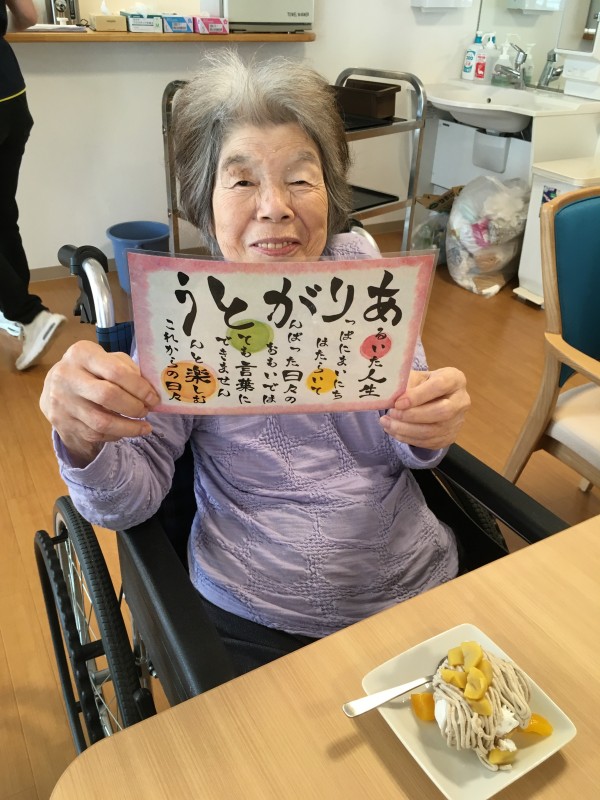 ありがとう
るいた人生
っぱにまいにち
はたらいて
んばった日々の
おもいでは
ても言葉に
できません
んと楽しむ
これからの日々